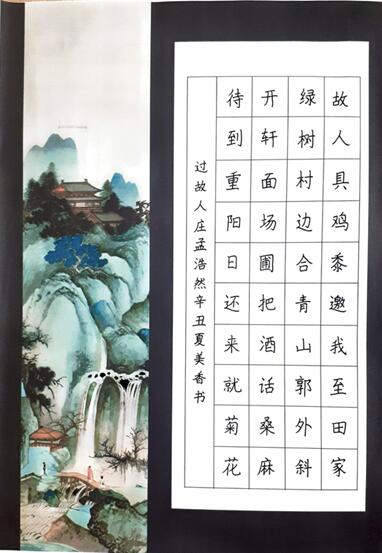 故人具鸡黍邀我至田家
绿树村边合青山郭外斜
开轩面场圃把酒话桑麻
待到重阳日还来就菊花
过故人庄孟浩然辛丑夏美香书